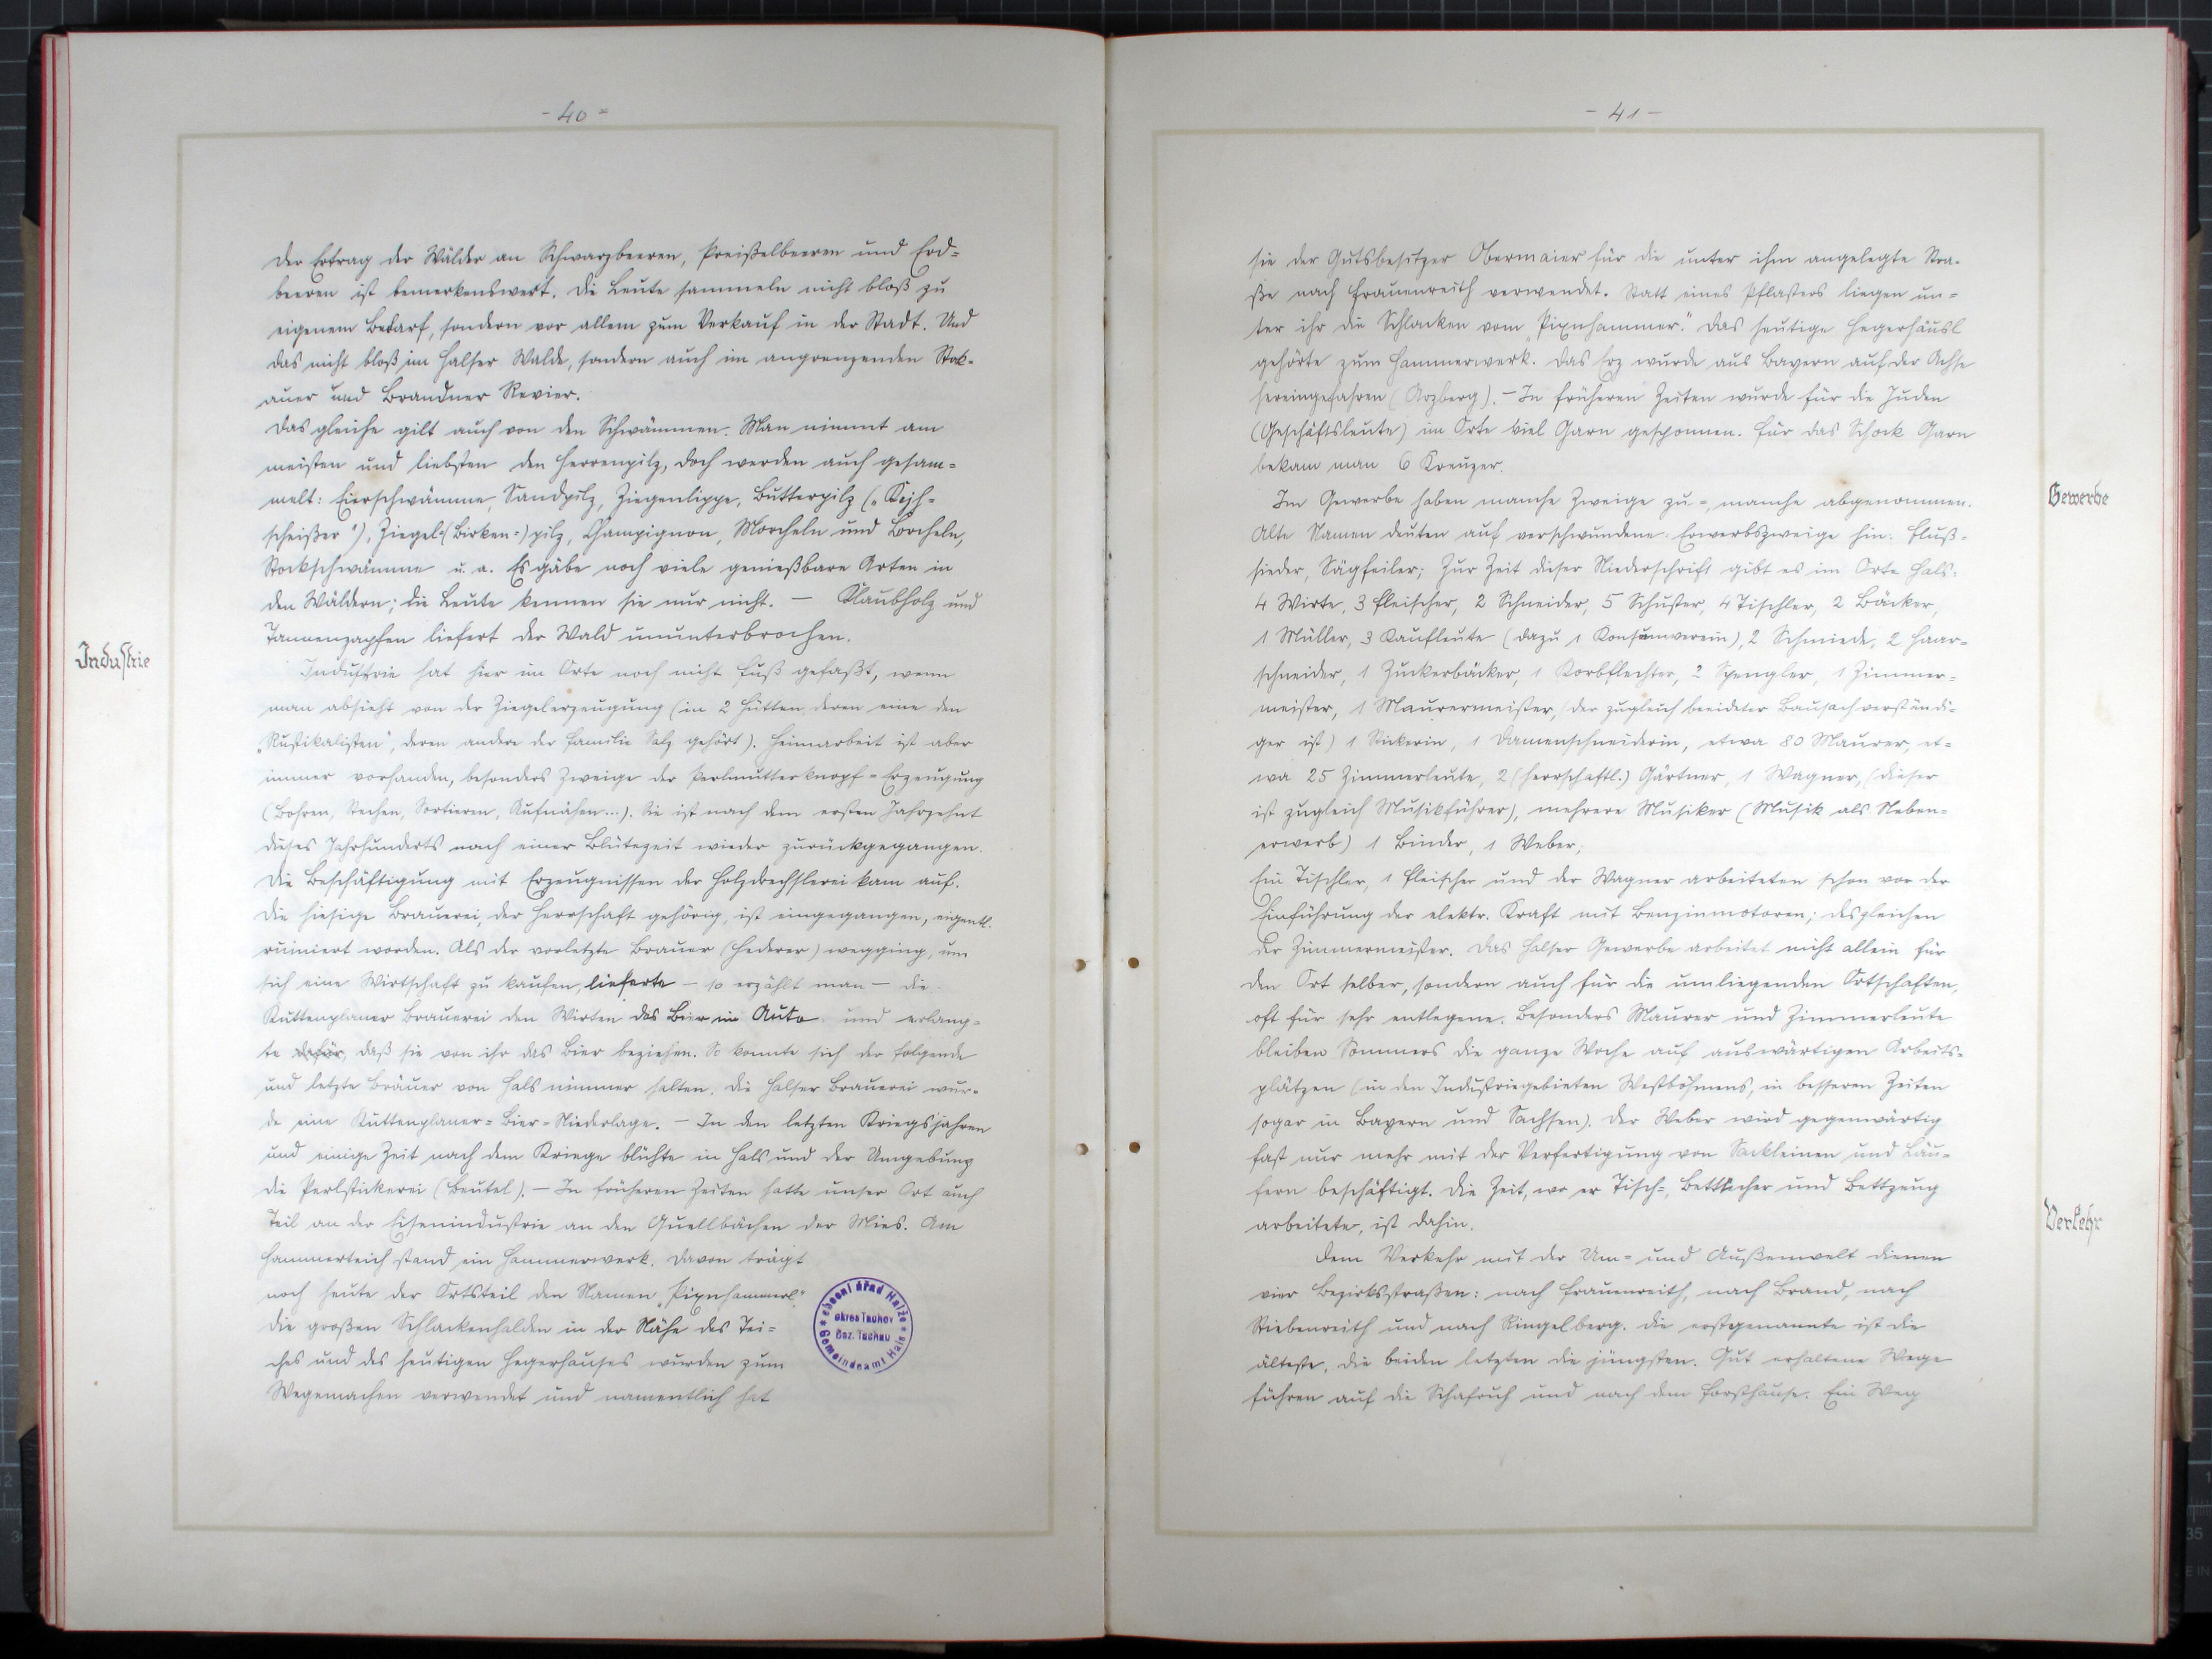 - 40 -
Der Ertrag der Wälder an Schwarzbeeren, Preißelbeeren und Erd-
beeren ist bemerkenswert. Die Leute sammeln nicht bloß zu
eigenem Bedarf, sondern vor allem zum Verkauf in der Stadt. Und
das nicht bloß im Halser Walde, sondern auch im angrenzenden Stok-
auer und Brandner Revier.
Das gleiche gilt auch von den Schwämmen. Man nimmt am
meisten und liebsten den Herrenpilz, doch werden auch gesam-
melt: Eierschwämme, Sandpilz, Ziegenlippe, Butterpilz („
scheißer"), Ziegel-(Birken-)pilz, Champignon, Morcheln und Lorcheln,
Stockschwämme u. a. Es gäbe noch viele genießbare Arten in
den Wäldern; die Leute kennen sie nur nicht. — Klaubholz und
Tannenzapfen liefert der Wald ununterbrochen.
Industrie
Industrie hat hier im Orte noch nicht Fuß gefaßt, wenn
man absieht von der Ziegelerzeugung (in 2 Hütten, deren eine den
„Rustikalisten", deren andere der Familie Salz gehört). Heimarbeit ist aber
immer vorhanden, besonders Zweige der Perlmutterknopf-Erzeugung
(Bohren, Stechen, Sortieren, Aufnähen...). Sie ist nach dem ersten Jahrzehnt
dieses Jahrhunderts nach einer Blütezeit wieder zurückgegangen.
Die Beschäftigung mit Erzeugnissen der Holzdrechslerei kam auf.
Die hiesige Brauerei, der Herrschaft gehörig, ist eingegangen, eigentl.
ruiniert worden. Als der vorletzte Brauer (Hederer) wegging, um
sich eine Wirtschaft zu kaufen, lieferte — so erzählt man — die
Kuttenplaner Brauerei den Wirten das Bier im Auto und verlang-
te dafür, daß sie von ihr das Bier beziehen. So konnte sich der folgende
und letzte Bräuer von Hals nimmer halten. Die Halser Brauerei wur-
de eine Kuttenplaner-Bier-Niederlage. — In den letzten Kriegsjahren
und einige Zeit nach dem Kriege blühte in Hals und der Umgebung
die Perlstickerei (Beutel). — In früheren Zeiten hatte unser Ort auch
Teil an der Eisenindustrie an den Quellbächen der Mies. Am
Hammerteich stand ein Hammerwerk. Davon trägt
noch heute der Ortsteil den Namen „Pixnhammerl."
Die großen Schlackenhalden in der Nähe des Tei-
ches und des heutigen Hegerhauses wurden zum
Wegemachen verwendet und namentlich hat
obecní úřad Halže
okres Tachov
Bez. Tachau
Gemeindeamt Hals
- 41 -
sie der Gutsbesitzer Obermaier für die unter ihm angelegte Stra-
ße nach Frauenreith verwendet. Statt eines Pflasters liegen un-
ter ihr die Schlacken vom „Pixnhammer." Das heutige Hegerhäusl
gehörte zum Hammerwerk. Das Erz wurde aus Bayern auf der Achse
hereingefahren (Arzberg). — In früheren Zeiten wurde für die Juden
(Geschäftsleute) im Orte viel Garn gesponnen. Für das Schock Garn
bekam man 6 Kreuzer.
Gewerbe
Im Gewerbe haben manche Zweige zu-, manche abgenommen.
Alte Namen deuten auf verschwundene Erwerbszweige hin: Fluß-
sieder, Sägfeiler; Zur Zeit dieser Niederschrift gibt es im Orte Hals:
4 Wirte, 3 Fleischer, 2 Schneider, 5 Schuster, 4 Tischler, 2 Bäcker,
1 Müller, 3 Kaufleute (dazu 1 Konsumverein), 2 Schmiede, 2 Haar-
schneider, 1 Zuckerbäcker, 1 Korbflechter, 2 Spengler, 1 Zimmer-
meister, 1 Maurermeister, (der zugleich beeideter Bausachverständi-
ger ist) 1 Stickerin, 1 Damenschneiderin, etwa 80 Maurer, et-
wa 25 Zimmerleute, 2 (herrschaftl.) Gärtner, 1 Wagner, (dieser
ist zugleich Musikführer), mehrere Musiker (Musik als Neben-
erwerb) 1 Binder, 1 Weber;
Ein Tischler, 1 Fleischer und der Wagner arbeiteten schon vor der
Einführung der elektr. Kraft mit Benzinmotoren; desgleichen
der Zimmermeister. Das Halser Gewerbe arbeitet nicht allein für
den Ort selber, sondern auch für die umliegenden Ortschaften,
oft für sehr entlegene. Besonders Maurer und Zimmerleute
bleiben Sommers die ganze Woche auf auswärtigen Arbeits-
plätzen (in den Industriegebieten Westböhmens, in besseren Zeiten
sogar in Bayern und Sachsen). Der Weber wird gegenwärtig
fast nur mehr mit der Verfertigung von Sackleinen und Läu-
fern beschäftigt. Die Zeit, wo er Tisch-, Bettücher und Bettzeug
arbeitete, ist dahin.
Verkehr
Dem Verkehr mit der Um- und Außenwelt dienen
vier Bezirksstraßen: nach Frauenreith, nach Brand, nach
Stiebenreith und nach Ringelberg. Die erstgenannte ist die
älteste, die beiden letzten die jüngsten. Gut erhaltene Wege
führen auf die Schafruh und nach dem Forsthause. Ein Weg